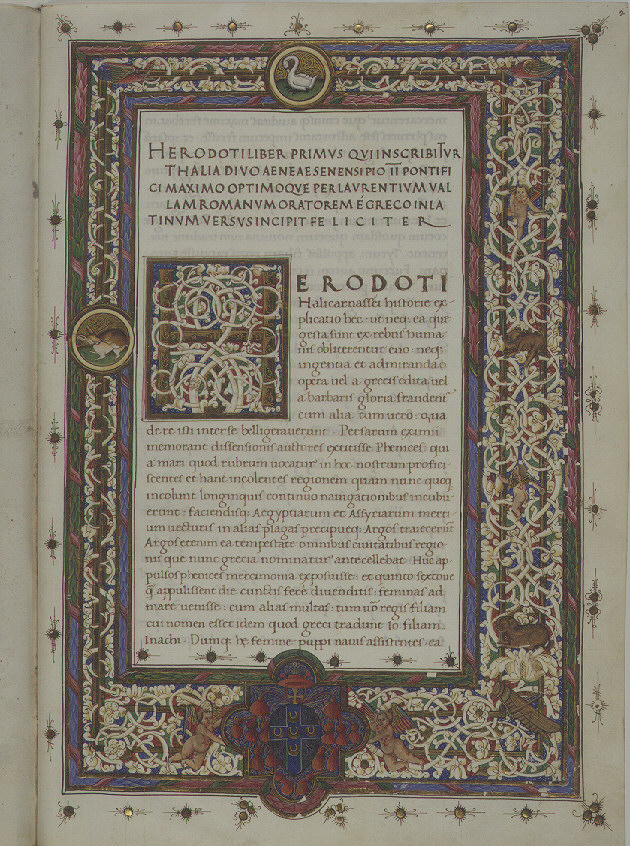 HERODOTI LIBER PRIMVS QVI INSCRIBITVR
THALIA DIVO AENEAE SENENSI PIO II PONTIFI
CI MAXIMO OPTIMOQVE PER LAVRENTIVM VAL
LAM ROMANVM ORATOREM E GRECO IN LA
TINVM VERSVS INCIPIT FELICITER
HERODOTI
Halicarnassei historie ex
plicatio hec ut neq ea que
gesta sunt ex rebus huma
nis obliterentur euo neq
ingentia et admiranda
opera uel a grecis edita uel
a barbaris gloria fraudent
cum alia tum uero qua
de re isti inter se belligerauerunt Persarum eximii
memorant dissensionis auctores extitisse Phenices qui
a mari quod rubrum uocatur in hoc nostrum profici
scentes et hanc incolentes regionem quam nunc quoq
incolunt longinquis continuo nauigationibus incubu
erunt faciendisq Aegyptiarum et Assyriarum merci
um uecturis in alias plagas precipueq Argos traiecerut
Argos etenim ea tempestate omnibus ciuitatibus regio
nis que nunc grecia nominatur antecellebat Huc ap
pulsos phenices mercimonia exposuisse et quinto sextoue
q appulissent die cunctis fere diuenditis feminas ad
mare uenisse cum alias multas tum uo regis filiam
cui nomen esset idem quod greci tradunt Io filiam
Inachi Dumq he femine puppi nauis assistentes ea